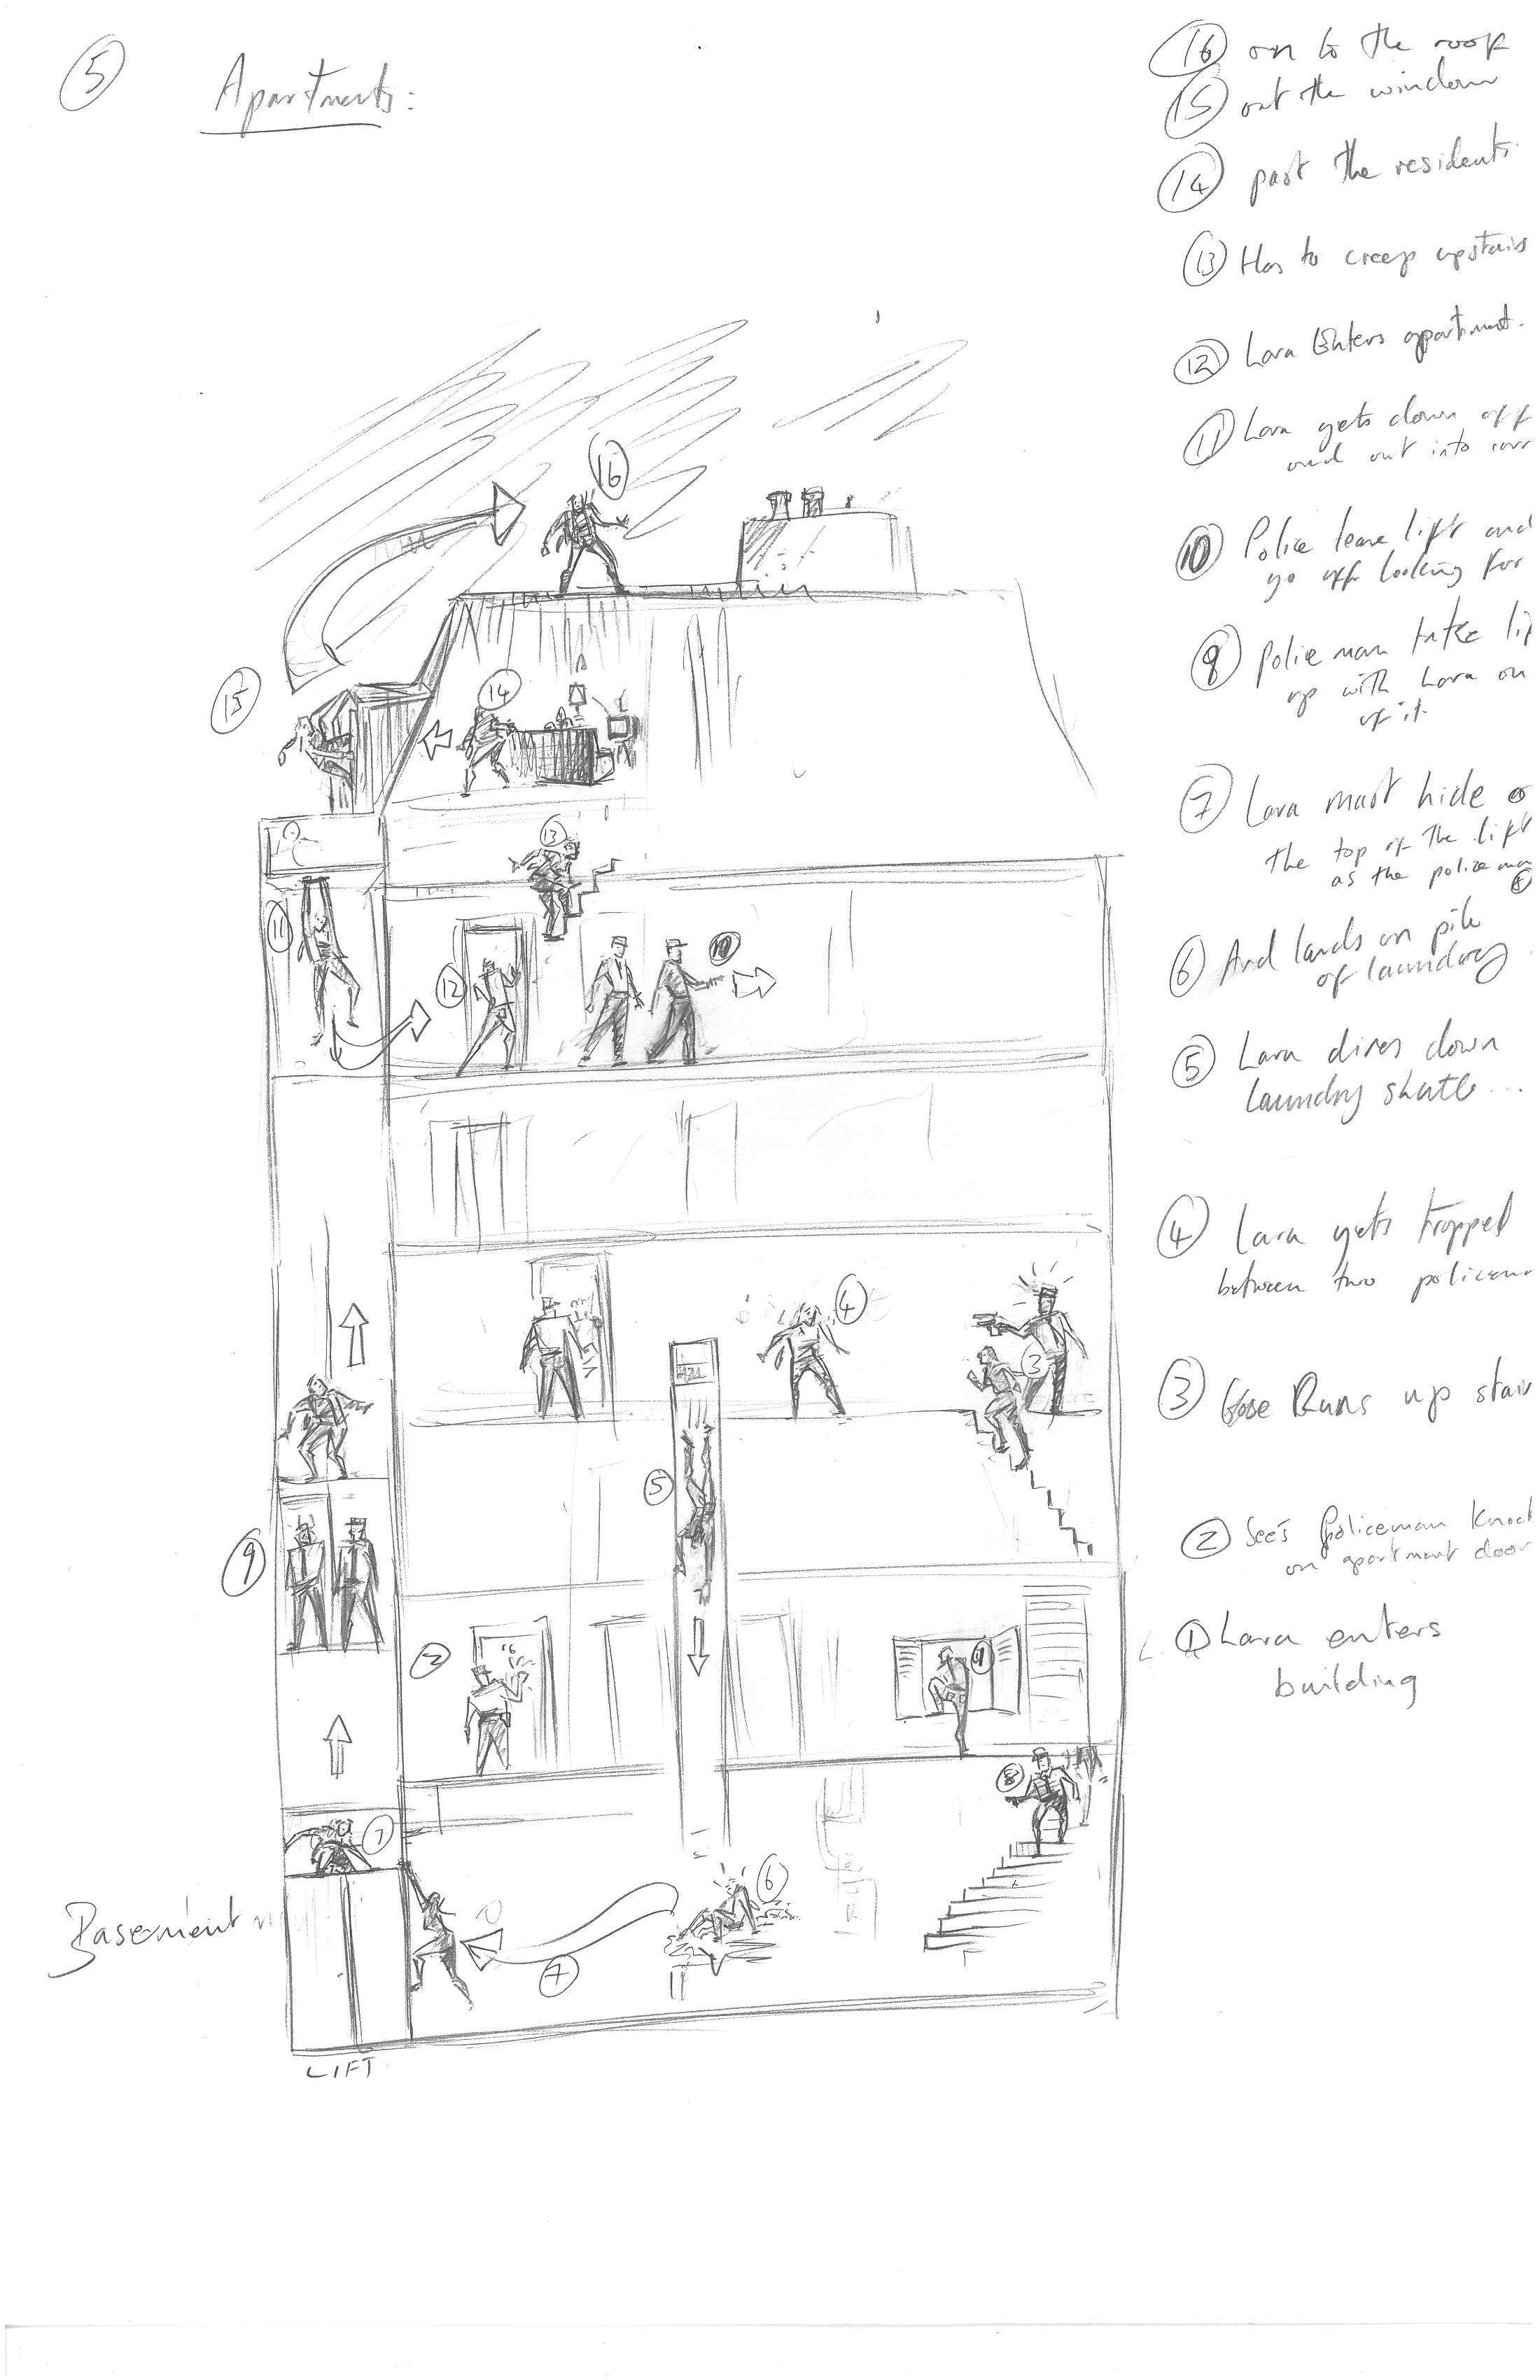 5
Apartments:
16 on to the roof
15 out the window
14 past the residents.
13 Has to creep upstairs
12 Lara Enters apartment.
11 Lara gets down off
and out into
10 Police leave lift and
go off looking for
9 police man take
up with Lara on
of it.
7 Lara must hide
the top of the lift
as the police
6 And lands on pile
of laundry
5 Lara dives down
laundry shute...
4 Lara gets trapped
between two
3 Runs up
2 See's Policeman
on apartment door
1 Lara enters
building
16
15
14
13
11
12
10
4
3
5
9
2
1
8
7
6
7
Basement
LIFT